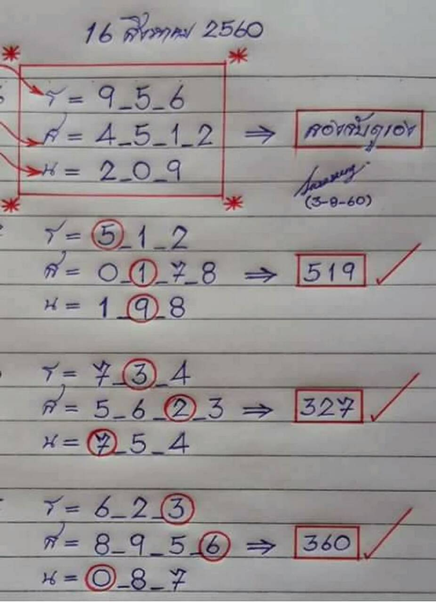 16 สิงหาคม 2560
ร = 9_5_6
ส = 4_5_1_2 ⇒ ลองจับดูเอง
น = 2_0_9
(3-8-60)
ร = 5_1_2
ส = 0_1_7_8 ⇒ 519 ✓
น = 1_9_8
ร = 7_3_4
ส = 5_6_2_3 ⇒ 327 ✓
น = 7_5_4
ร = 6_2_3
ส = 8_9_5_6 ⇒ 360 ✓
น = 0_8_7